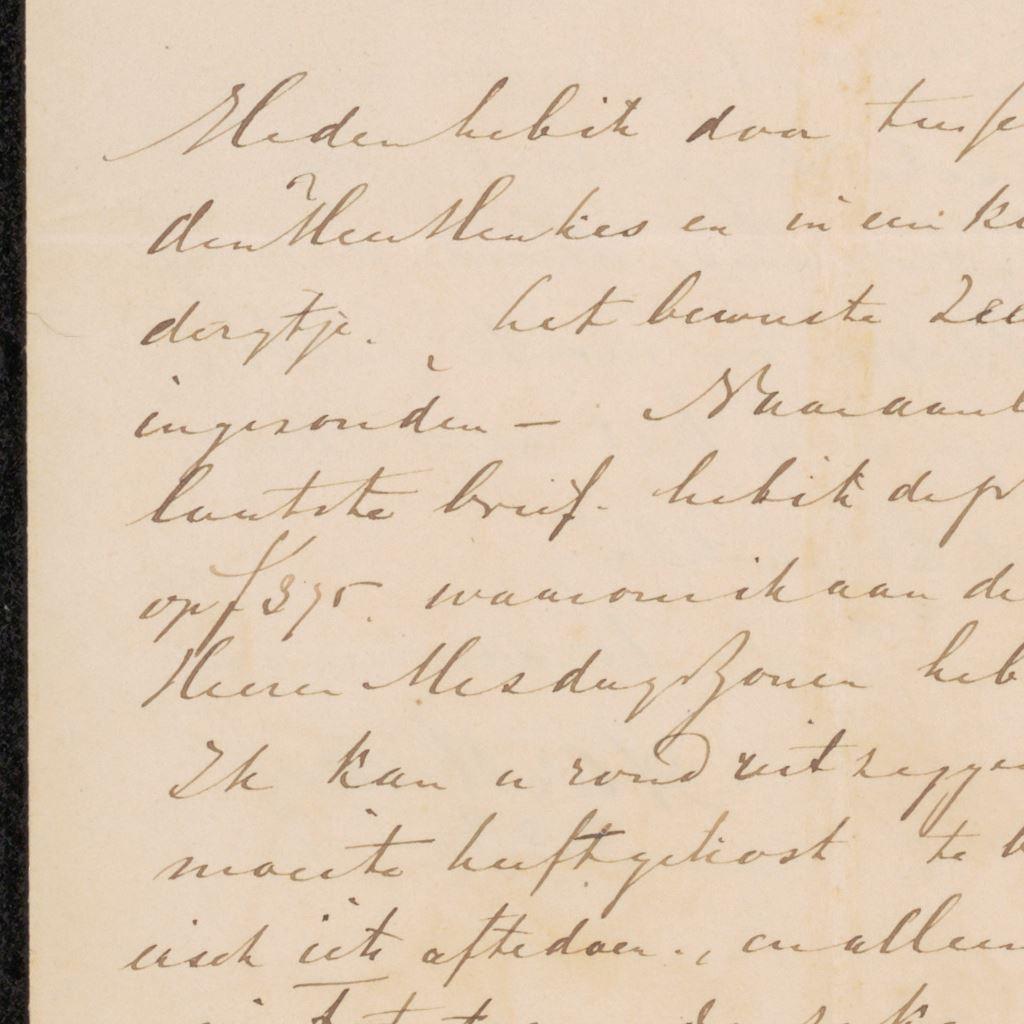 Heden heb ik door tus
den Heer Henkes en in een k
dergtje. het bewuste Zee
ingezonden — Naar aanl
laatste brief. heb ik de pr
op f 375. waarom ik aan de
Heeren Mesdag & Zonen heb
Ik kan u rond uit zeggen
moeite heeft gekost te b
eisch iets af te doen., en alleen